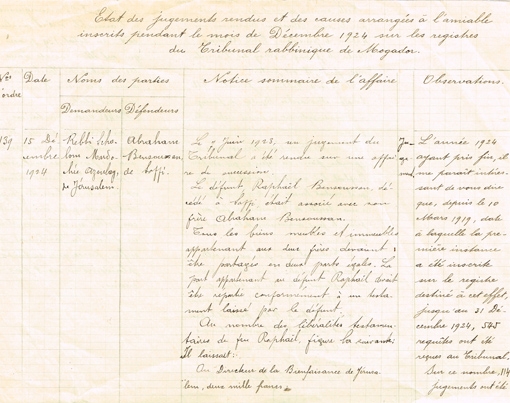 Etat des jugements rendus et des causes arrangées à l'amiable
inscrits pendant le mois de Décembre 1924 sur les registres
du Tribunal rabbinique de Mogador.
Nos
d'ordre
Date
Noms des parties
Demandeurs
Défendeurs
Notice sommaire de l'affaire
Observations.
139
15 Dé-
cembre
1924
Rebbi Scha-
lom Mardo-
chée Azoulay,
de Jérusalem.
Abraham
Bensoussan,
de Saffi.
Le 7 Juin 1923, un jugement du
Tribunal a été rendu sur une affai-
re de succession.
Le défunt, Raphaël Bensoussan, dé-
cédé à Saffi était associé avec son
frère Abraham Bensoussan.
Tous les biens meubles et immeubles
appartenant aux deux frères devaient
être partagés en deux parts égales. La
part appartenant au défunt Raphaël devait
être répartie conformément à un testa-
ment laissé par le défunt.
Au nombre des libéralités testamen-
taires de feu Raphaël, figure la suivante:
Il laissait:
Au Directeur de la Bienfaisance de Jérusa-
lem, deux mille francs
L'année 1924
ayant pris fin, il
me paraît intéres-
sant de vous dire
que, depuis le 10
Mars 1919, date
à laquelle la pre-
mière instance
a été inscrite
sur le registre
destiné à cet effet,
jusqu'au 31 Dé-
cembre 1924, 545
requêtes ont été
reçues au Tribunal.
Sur ce nombre, 114
jugements ont été